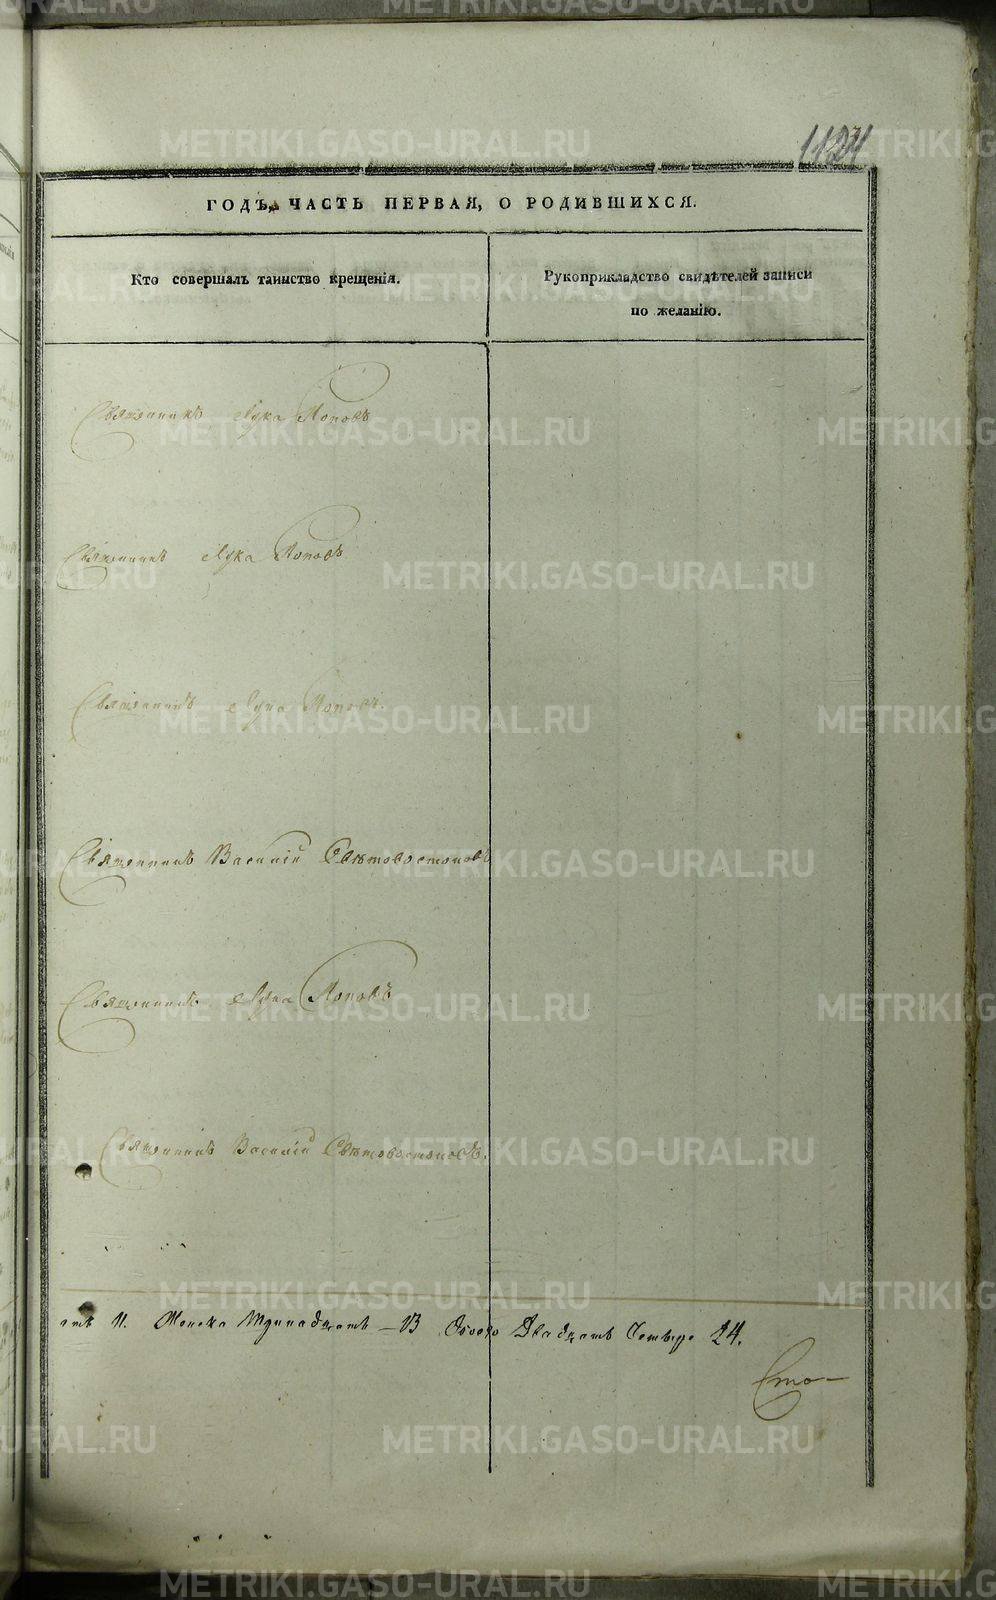 1124
ГОДЪ, ЧАСТЬ ПЕРВАЯ, О РОДИВШИХСЯ.
Кто совершалъ таинство крещенія.
Рукоприкладство свидѣтелей записи
по желанію.
Священникъ Лука Поповъ
Священникъ Лука Поповъ
Священникъ Лука Поповъ.
Священникъ Василій Свѣтовостоковъ
Священникъ Лука Поповъ
Священникъ Василій Свѣтовостоковъ.
11. Женска 13 Обоего Двадцать Четыре 24.
METRIKI.GASO-URAL.RU